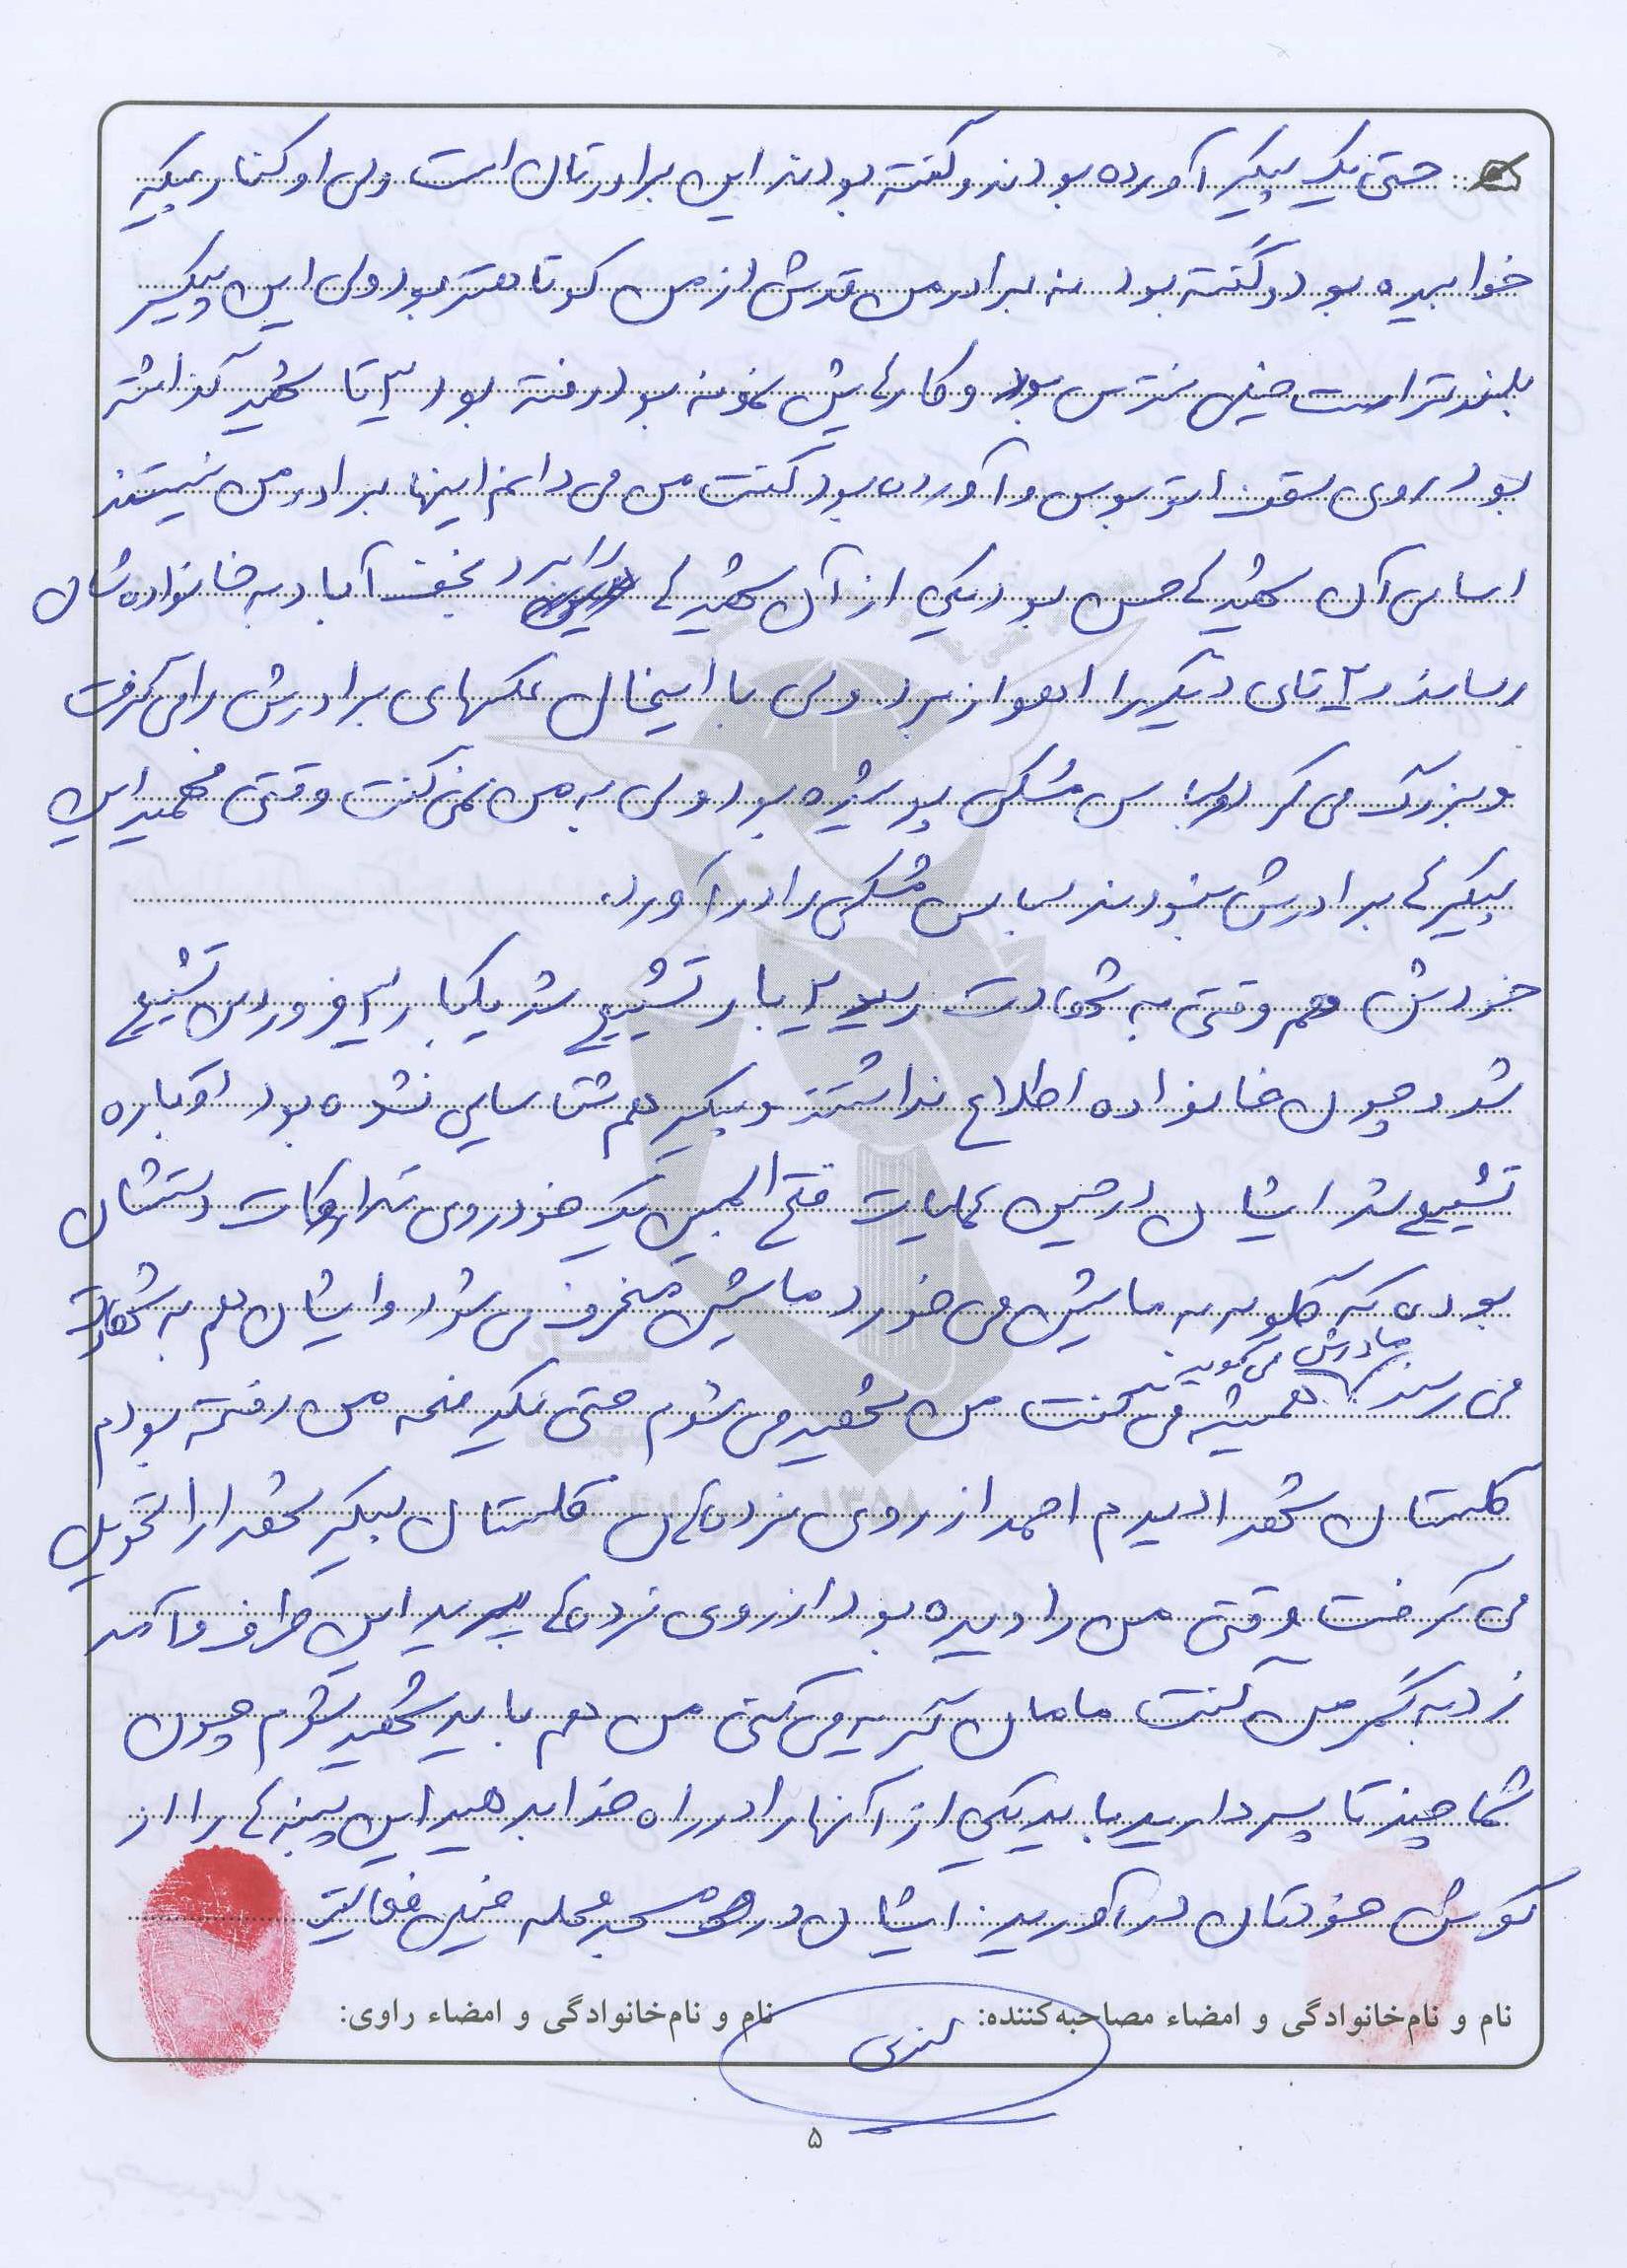 حتی یک پیکر آورده بودند و گفته بودند این برادرتان است ولی او کنار پیکر
خوابیده بود و گفته بود نه برادر من قدش از من کوتاهتر بود ولی این پیکر
بلندتر است خیلی نترس بود و کارهایش نمونه بود رفته بود ۳ تا شهید گذاشته
بود روی سقف اتوبوس و آورده بود گفت من می دانم اینها برادر من نیستند
اسامی آن شهیدها حسن بود یکی از آن شهیدها را برد نجف آباد به خانواده شان
رساند و ۲ تای دیگر را اهواز برد ولی با اینحال عکسهای برادرش را می گرفت
و بزرگ می کرد و لباس مشکی پوشیده بود ولی به من نمی گفت وقتی فهمید این
پیکرها برادرش نبودند لباس مشکی را درآورد.
خودش هم وقتی به شهادت رسید ۲ بار تشییع شد یکبار ۳ فروردین تشییع
شد و چون خانواده اطلاع نداشتند و پیکر هم شناسایی نشده بود دوباره
تشییع شد ایشان در حین عملیات فتح المبین یک خودروی تدارکات دستشان
بوده که گلوله به ماشین می خورد ماشین منحرف می شود و ایشان هم به شهادت
می رسد مادرش می گوید: همیشه می گفت من شهید می شوم حتی یک دفعه من رفته بودم
گلستان شهدا دیدم احمد از روی نرده های گلستان پیکر شهدا را تحویل
می گرفت وقتی من را دیده بود از روی نرده ها پرید این طرف و آمد
زد به کمر من گفت مامان گریه می کنی من هم باید شهید شوم چون
شما چند تا پسر دارید باید یکی از آنها را در راه خدا بدهید این پنبه ها را از
گوش خودتان درآورید. ایشان در مسجد محله خیلی فعالیت
نام و نام‌خانوادگی و امضاء مصاحبه‌کننده: نام و نام‌خانوادگی و امضاء راوی:
۵